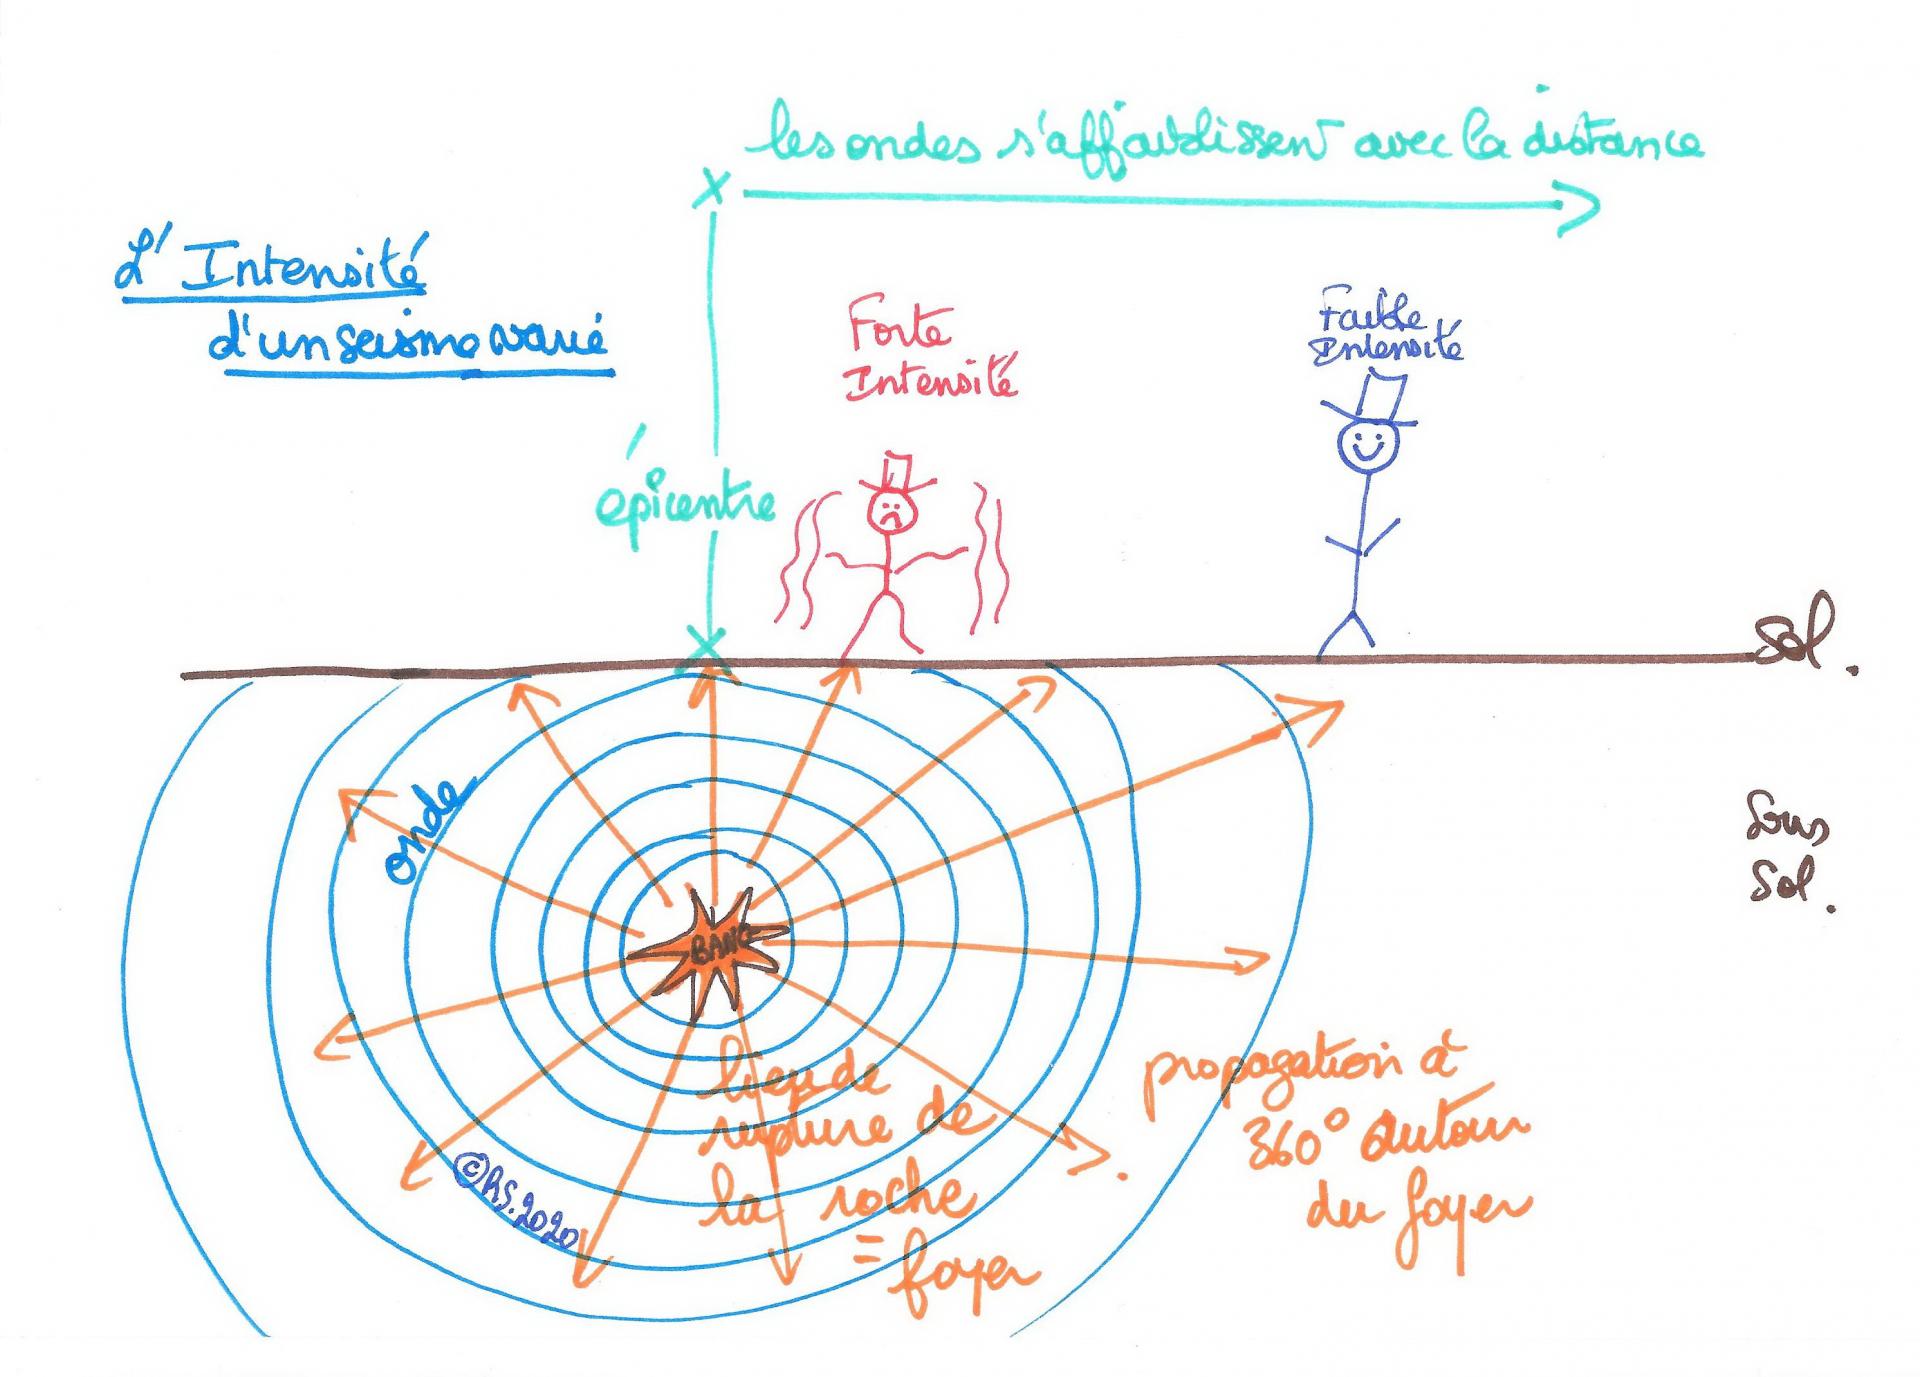 les ondes s'affaiblissent avec la distance
L'Intensité
d'un seisme varie
Forte
Intensité
Faible
Intensité
épicentre
sol.
Sous
Sol.
onde
BANG
lieu de
rupture de
la roche
= foyer
propagation à
360° autour
du foyer
©RS.2020